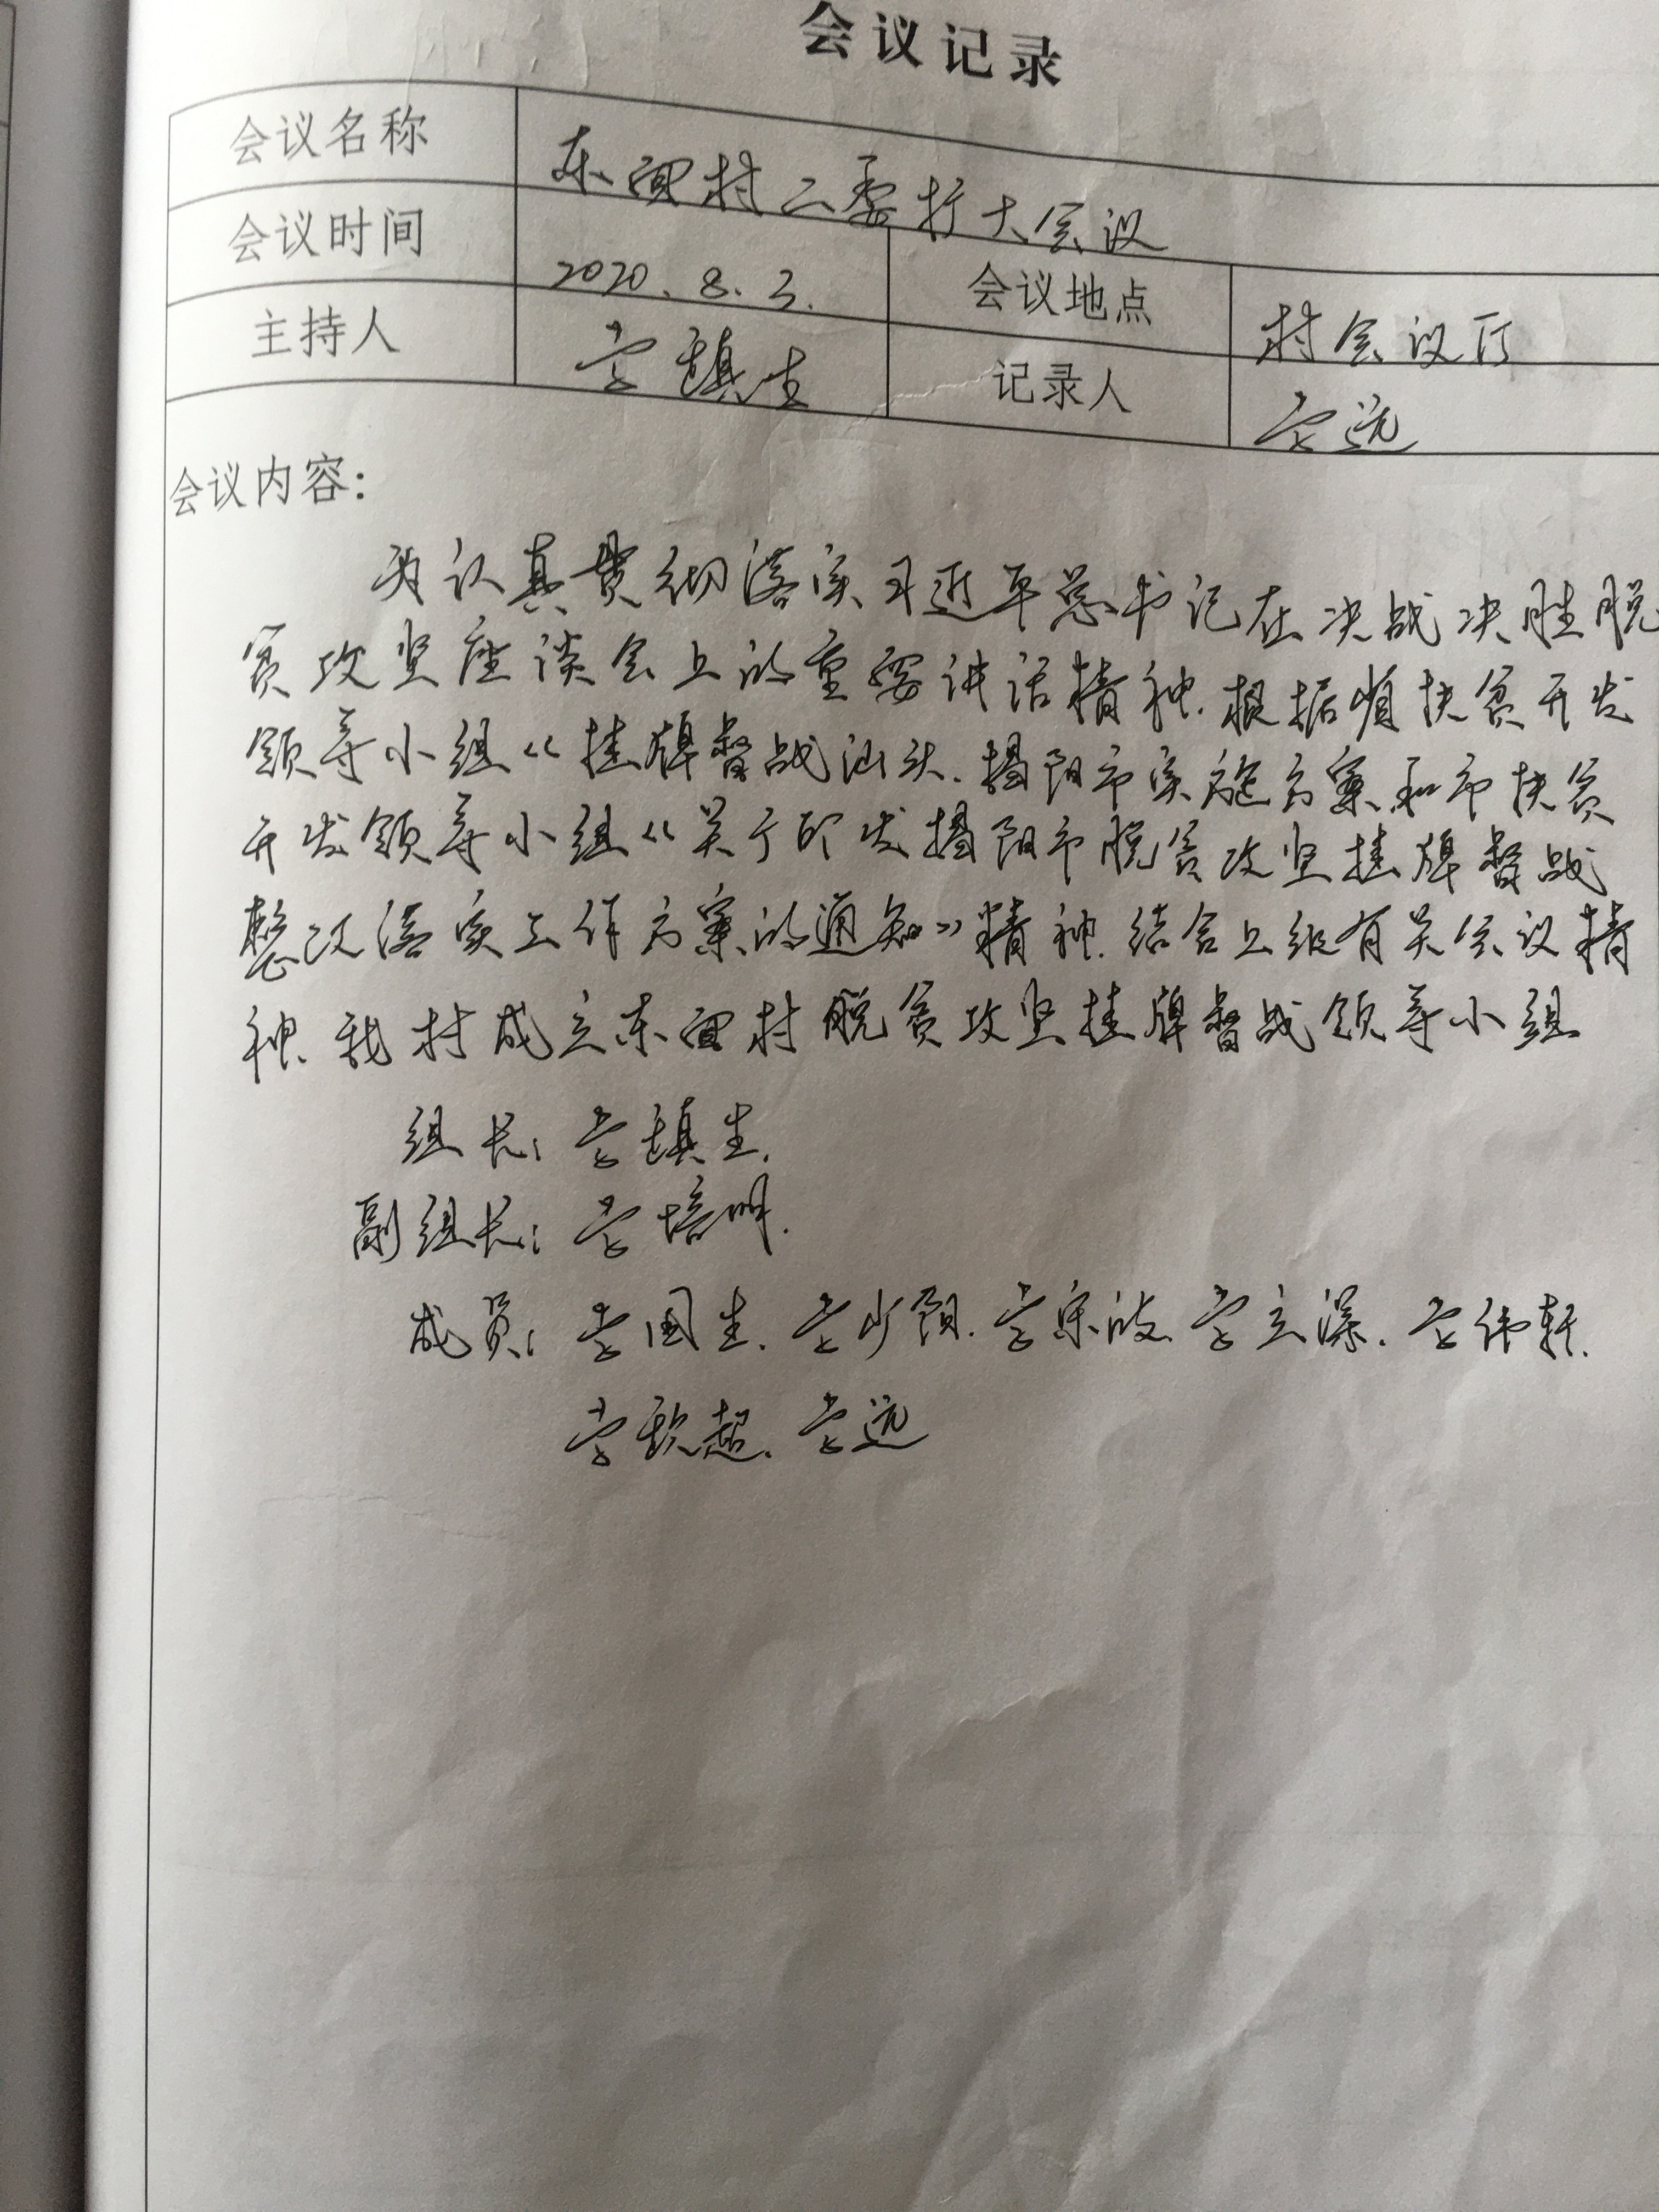 会议记录
会议名称 东面村二委扩大会议
会议时间 2020.8.3. 会议地点 村会议厅
主持人 镇生 记录人 远
会议内容：
为认真贯彻落实习近平总书记在决战决胜脱
贫攻坚座谈会上的重要讲话精神.根据省扶贫开发
领导小组《挂牌督战汕头.揭阳市实施方案和市扶贫
开发领导小组《关于印发揭阳市脱贫攻坚挂牌督战
整改落实工作方案的通知》精神.结合上级有关会议精
神.我村成立东面村脱贫攻坚挂牌督战领导小组
组长：镇生.
副组长：培明.
成员：国生.少阳.立深.伟轩.
超.远